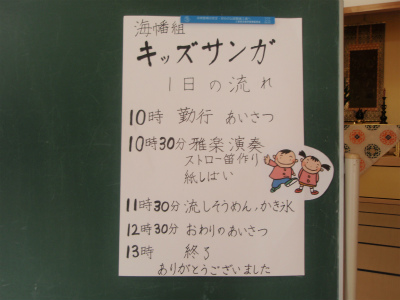 海幡組
キッズサンガ
1日の流れ
10時 勤行 あいさつ
10時30分 雅楽演奏
ストロー笛作り
紙しばい
11時30分 流しそうめん、かき氷
12時30分 おわりのあいさつ
13時 終了
ありがとうございました